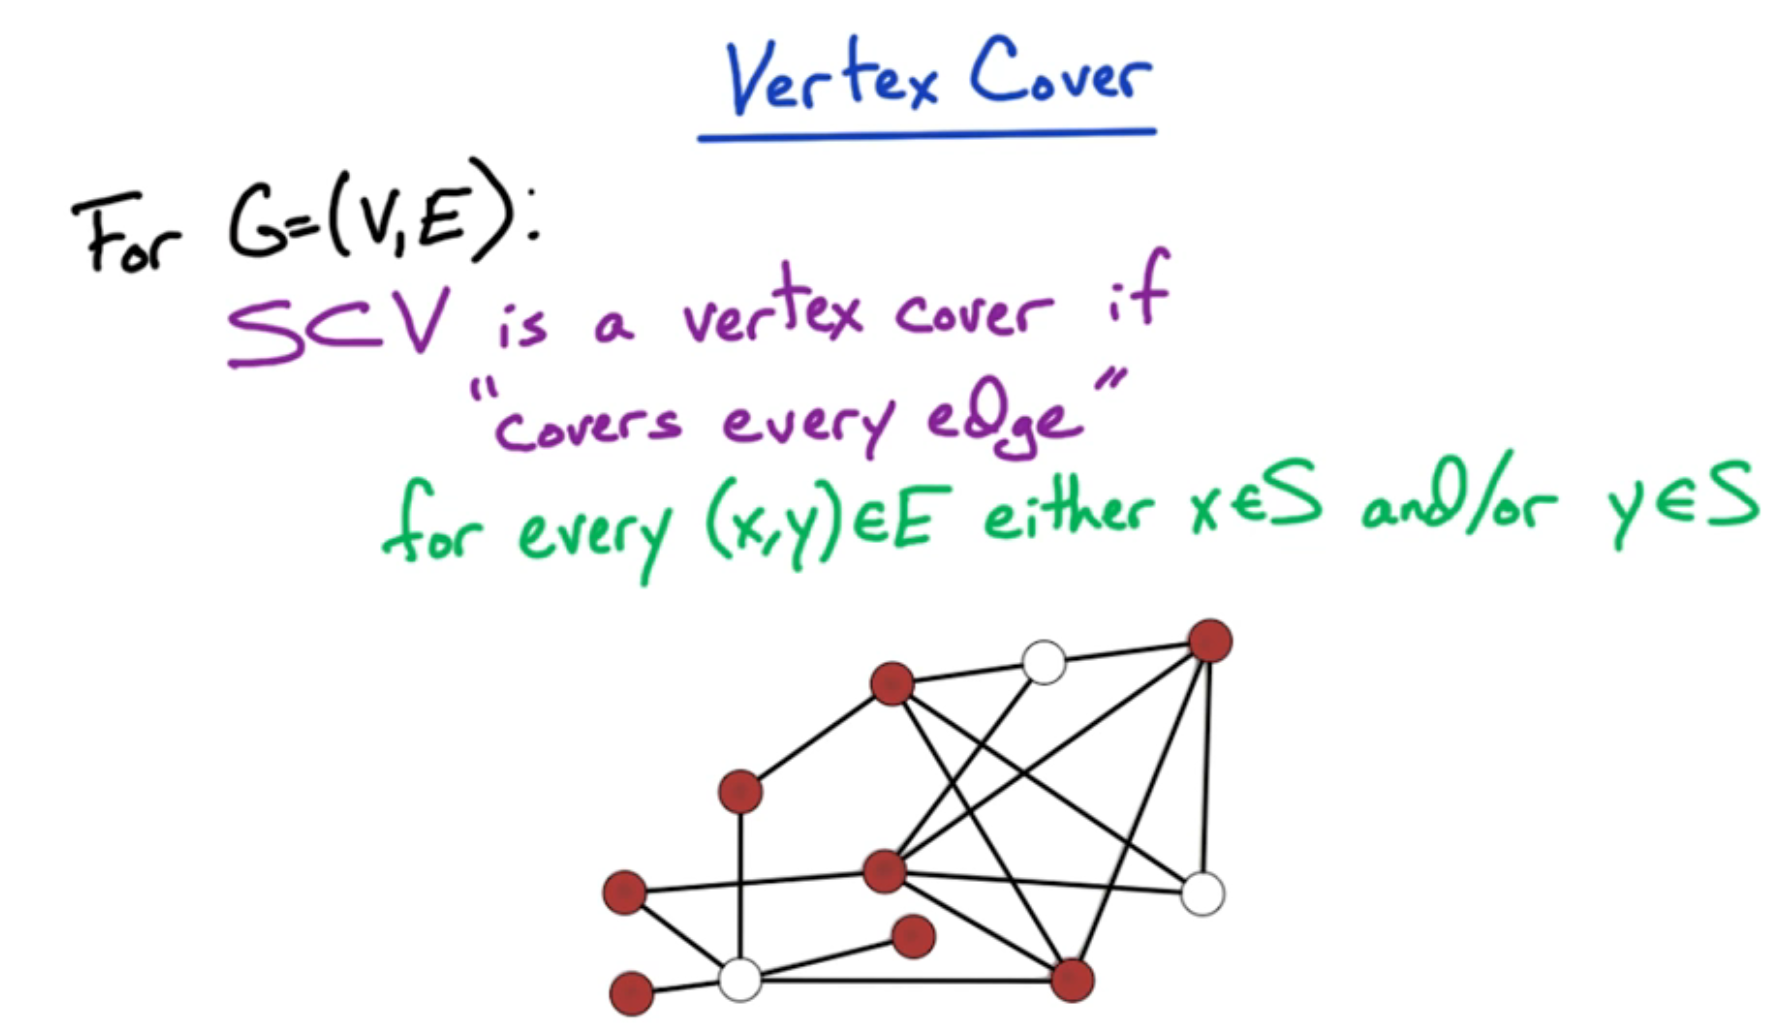 Vertex Cover
For G=(V,E):
S⊂V is a vertex cover if
"covers every edge"
for every (x,y)∈E either x∈S and/or y∈S